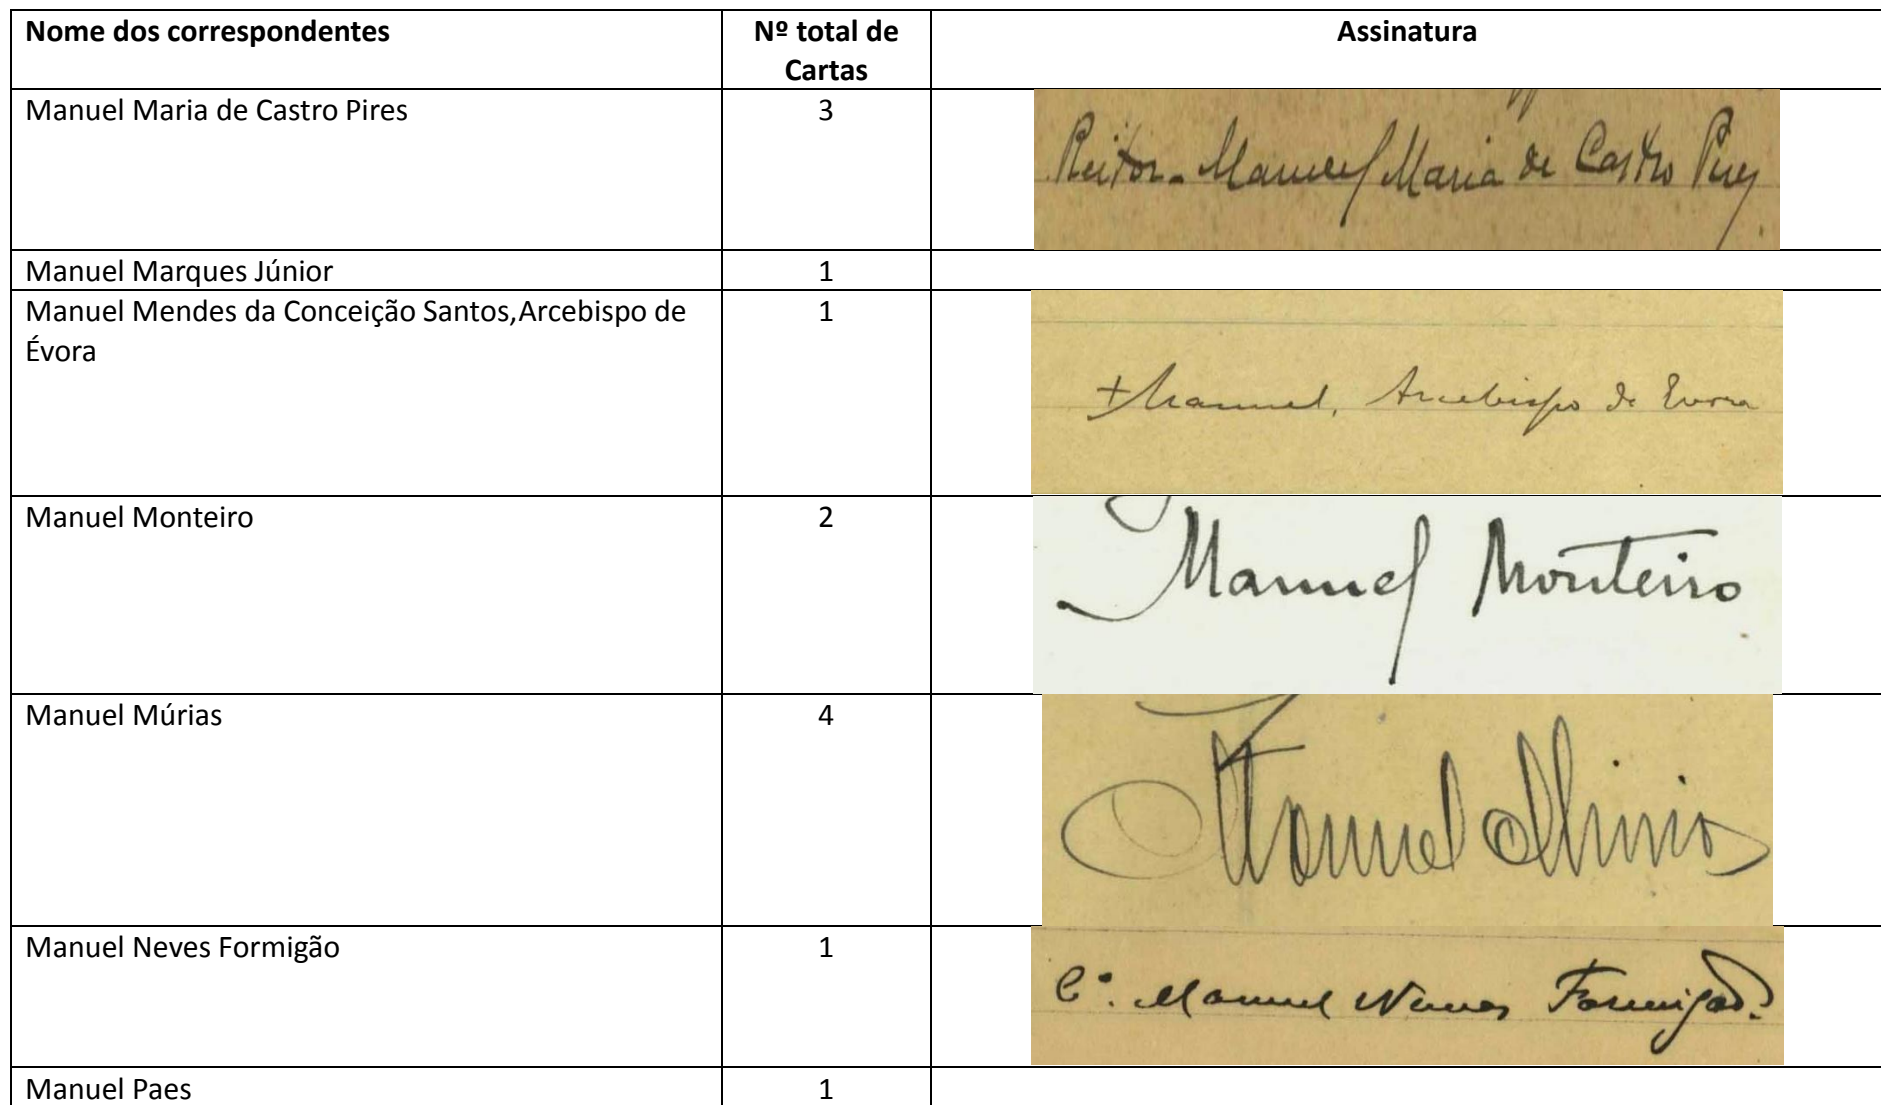 Nome dos correspondentes
Nº total de
Cartas
Assinatura
Manuel Maria de Castro Pires
3
Reitor- Manuel Maria de Castro Pires
Manuel Marques Júnior
1
Manuel Mendes da Conceição Santos,Arcebispo de
Évora
1
+ Manuel, Arcebispo de Evora
Manuel Monteiro
2
Manuel Monteiro
Manuel Múrias
4
Manuel Múrias
Manuel Neves Formigão
1
C.º Manuel Nunes Formigão.
Manuel Paes
1